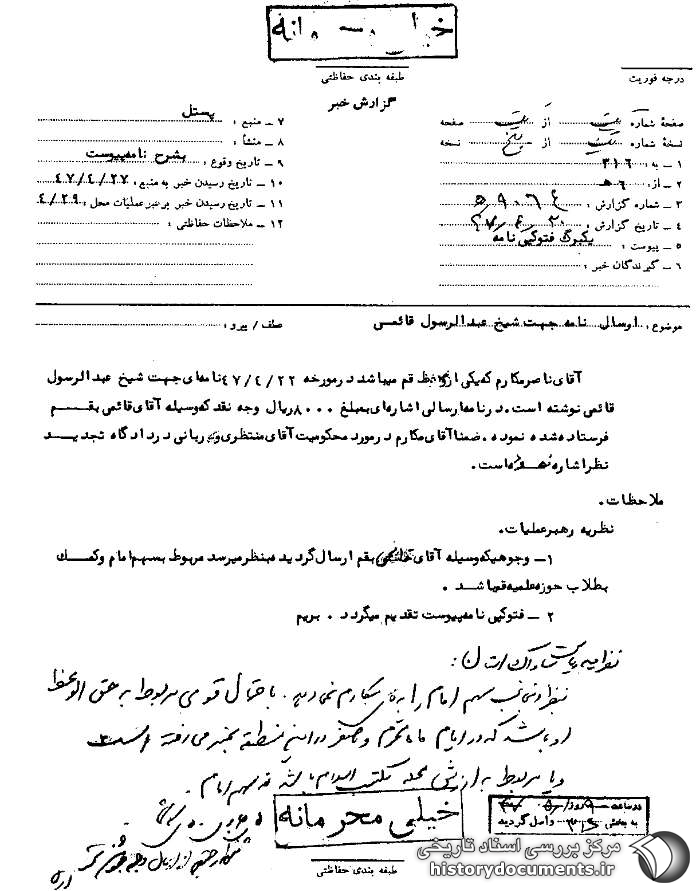 خیلی محرمانه
طبقه بندی حفاظتی
درجه فوریت
گزارش خبر
صفحه شماره یک از یک صفحه
نسخه شماره یک از پنج نسخه
۱ – به : ۳۱۶
۲ – از : ۶ هـ
۳ – شماره گزارش : ۵۹۰۶۴
۴ – تاریخ گزارش :
۵ – پیوست : یکبرگ فتوکپی نامه
۶ – گیرندگان خبر :
۷ – منبع : پستل
۸ – منشأ :
۹ – تاریخ وقوع : بشرح نامه پیوست
۱۰ – تاریخ رسیدن خبر به منبع : ۴۷/۴/۲۷
۱۱ – تاریخ رسیدن خبر برهبر عملیات محل : ۴/۲۹
۱۲ – ملاحظات حفاظتی :
موضوع : ارسال نامه جهت شیخ عبدالرسول قائمی
عطف / پیرو :
آقای ناصر مکارم که یکی از وعاظ قم میباشد در مورخه ۴۷/۴/۲۲ نامه‌ای جهت شیخ عبدالرسول
قائمی نوشته است. در نامه ارسالی اشاره‌ای بمبلغ ۸۰۰۰ ریال وجه نقد که وسیله آقای قائمی بقم
فرستاده شده نموده. ضمنا آقای مکارم در مورد محکومیت آقای منتظری و ربانی در دادگاه تجدید
نظر اشاره نموده است.
ملاحظات.
نظریه رهبر عملیات.
۱– وجوهیکه وسیله آقای قائمی بقم ارسال گردیده بنظر میرسد مربوط بسهم امام و کمک
بطلاب حوزه علمیه قم باشد .
۲ – فتوکپی نامه پیوست تقدیم میگردد . بریم
نظریه ریاست ساواک استان :
سهم امام را به مکارم نمی‌دهد . باحتمال قوی مربوط به حق الوعظ
او باشد که در ایام ماه محرم و صفر در این منطقه بمنبر می‌رفته است
و یا مربوط به ارزش مجله مکتب اسلام باشد نه سهم امام .
خیلی محرمانه
طبقه بندی حفاظتی
در ساعت روز
به بخش ۳۱۶ واصل گردید
مرکز بررسی اسناد تاریخی
historydocuments.ir